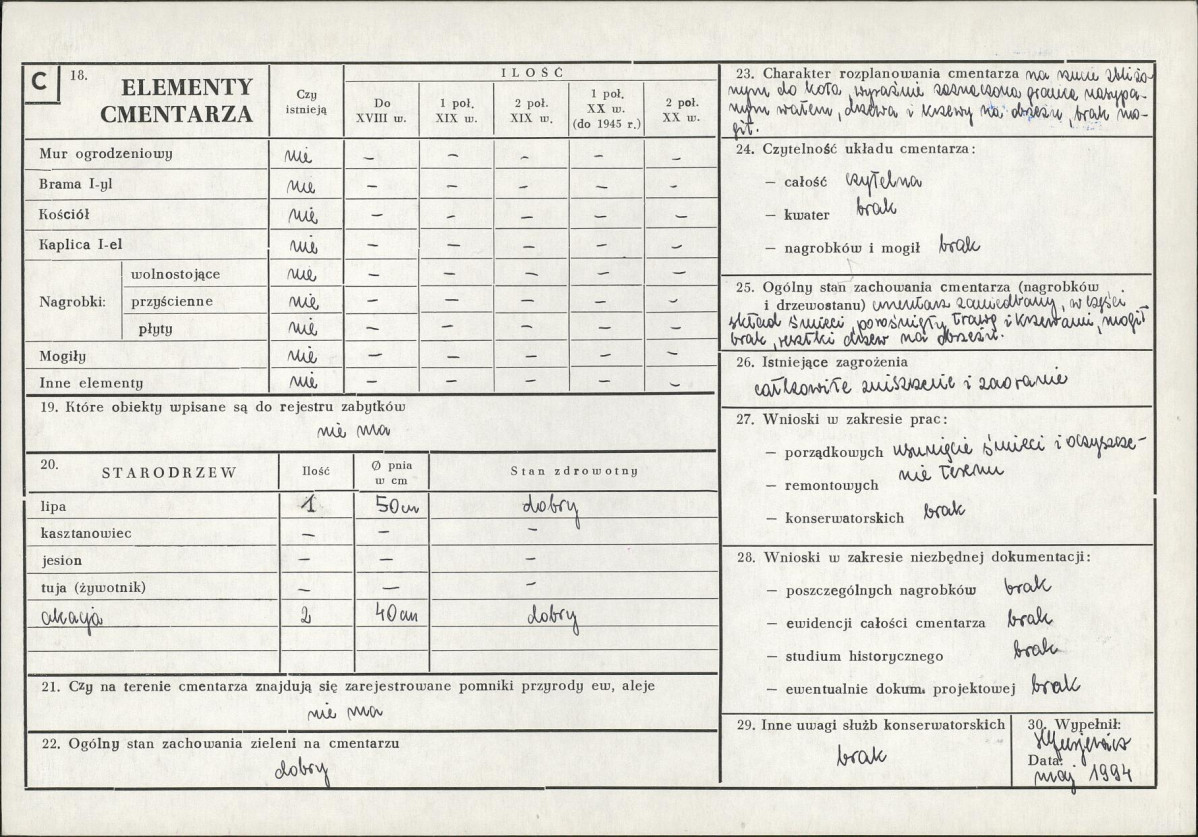 C 18. ELEMENTY
CMENTARZA
Czy
istnieją
ILOŚĆ
Do
XVIII w.
1 poł.
XIX w.
2 poł.
XIX w.
1 poł.
XX w.
(do 1945 r.)
2 poł.
XX w.
Mur ogrodzeniowy nie – – – – –
Brama I-yl nie – – – – –
Kościół nie – – – – –
Kaplica I-el nie – – – – –
Nagrobki:
wolnostojące nie – – – – –
przyścienne nie – – – – –
płyty nie – – – – –
Mogiły nie – – – – –
Inne elementy nie – – – – –
19. Które obiekty wpisane są do rejestru zabytków
nie ma
20. STARODRZEW Ilość Ø pnia
w cm Stan zdrowotny
lipa 1 50cm dobry
kasztanowiec – – –
jesion – – –
tuja (żywotnik) – – –
akacja 2 40cm dobry
21. Czy na terenie cmentarza znajdują się zarejestrowane pomniki przyrody ew, aleje
nie ma
22. Ogólny stan zachowania zieleni na cmentarzu
dobry
23. Charakter rozplanowania cmentarza na zbliżo-
nym do koła, wyraźnie zaznaczona granica nasypa-
nym wałem, drzewa i krzewy na obrzeżu, brak mo-
gił.
24. Czytelność układu cmentarza:
– całość czytelna
– kwater brak
– nagrobków i mogił brak
25. Ogólny stan zachowania cmentarza (nagrobków
i drzewostanu) cmentarz zaniedbany, w części
skład śmieci, porośnięty trawą i krzewami, mogił
brak, resztki drzew na obrzeżu.
26. Istniejące zagrożenia
całkowite zniszczenie i zaoranie
27. Wnioski w zakresie prac:
– porządkowych usunięcie śmieci i oczyszcze-
nie terenu
– remontowych
– konserwatorskich brak
28. Wnioski w zakresie niezbędnej dokumentacji:
– poszczególnych nagrobków brak
– ewidencji całości cmentarza brak
– studium historycznego brak
– ewentualnie dokum. projektowej brak
29. Inne uwagi służb konserwatorskich
brak
30. Wypełnił:
Data:
maj 1994